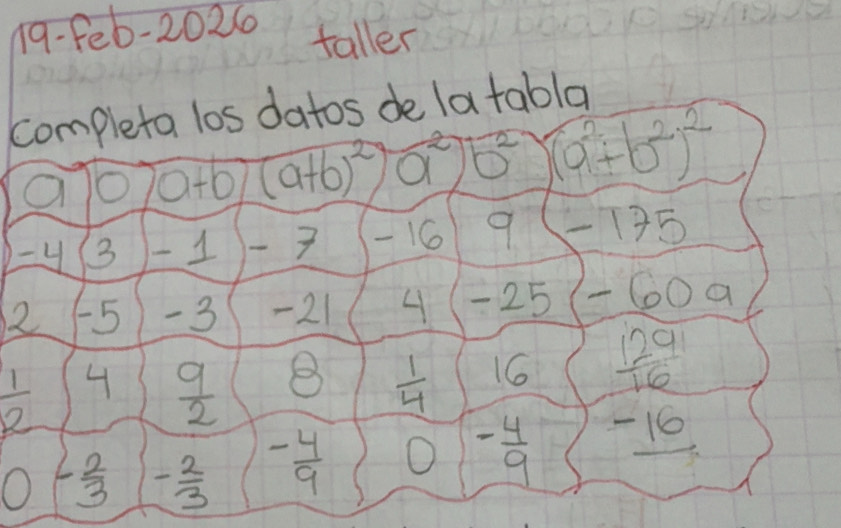 19-feb-2026 taller
completa los datos de la tabla
a b a+b (a+b)² a² b² (a²+b²)²
-4 3 -1 -7 -16 9 -175
2 -5 -3 -21 4 -25 -609
1/2 4 9/2 8 1/4 16 129/16
0 -2/3 -2/3 -4/9 0 -4/9 -16/